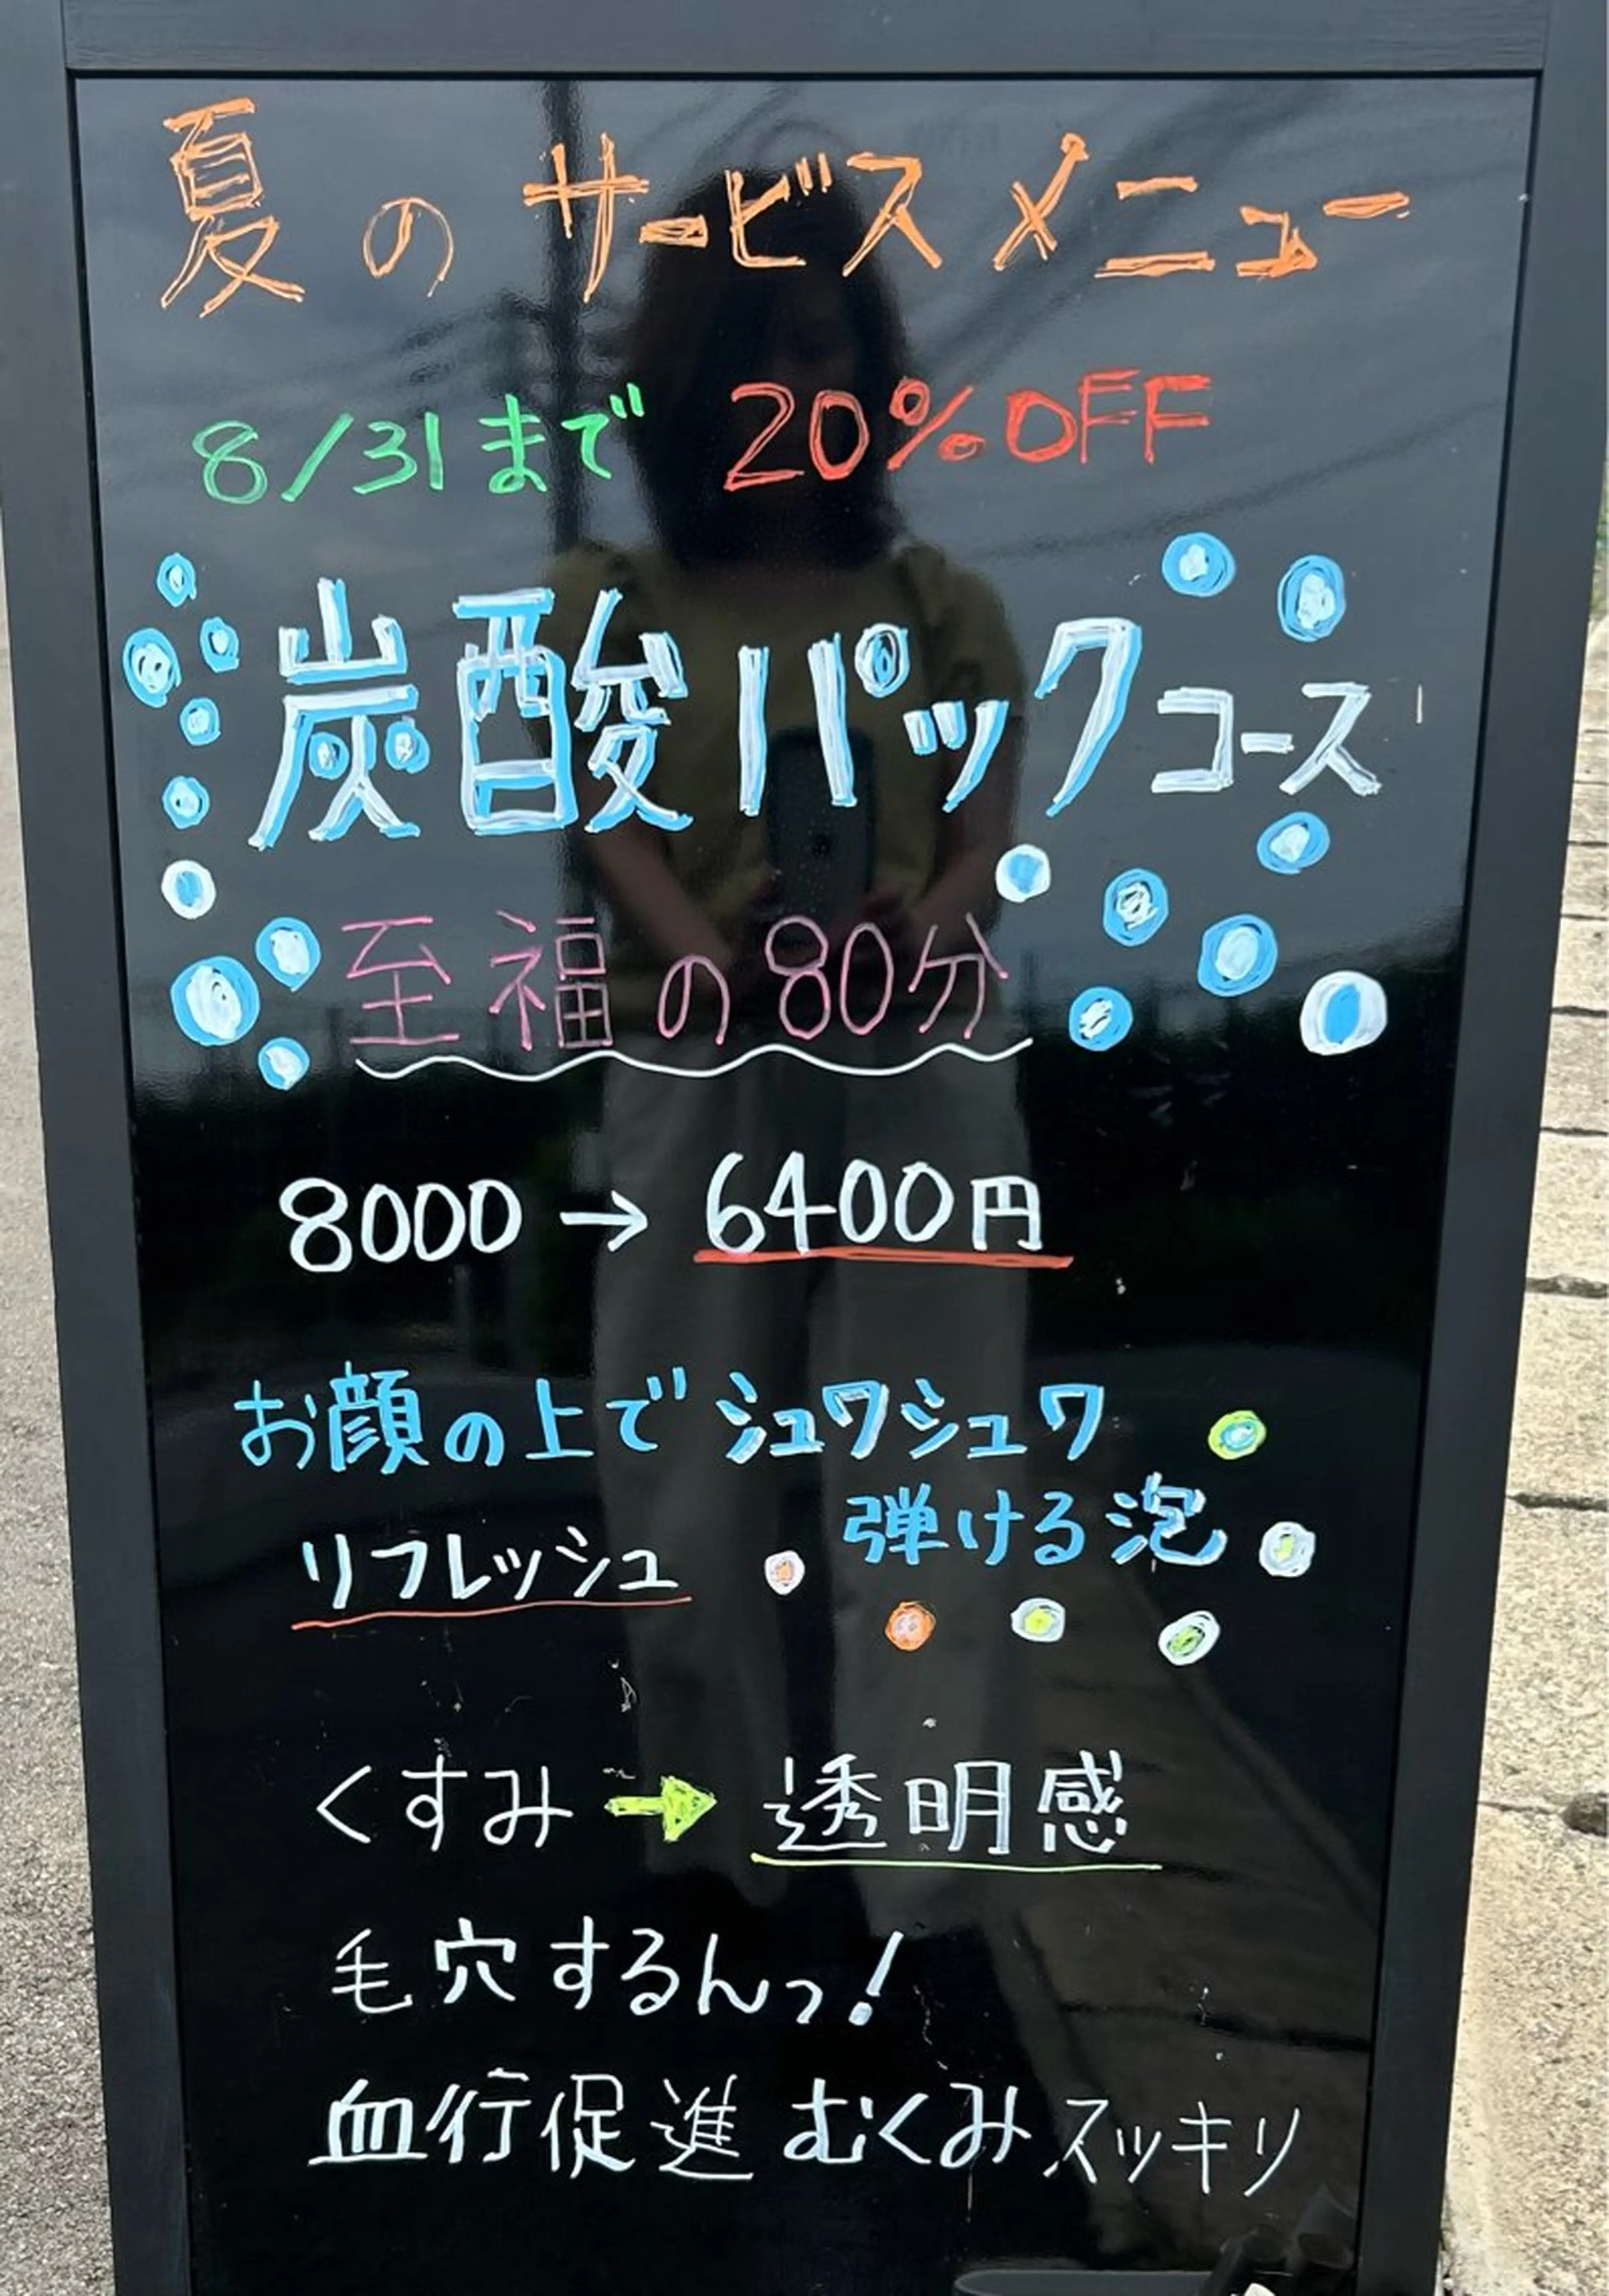 夏のサービスメニュー
8/31まで 20%OFF
炭酸パックコース
至福の80分
8000→6400円
お顔の上でシュワシュワ
弾ける泡
リフレッシュ
くすみ→透明感
毛穴するんっ!
血行促進 むくみスッキリ